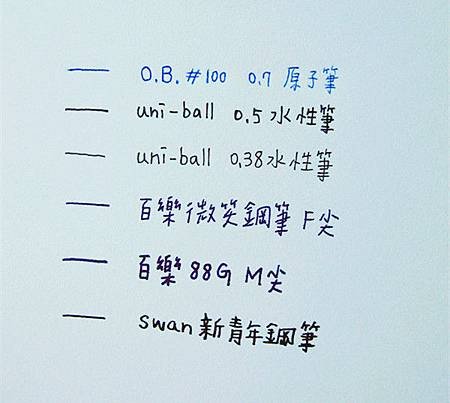 O.B. #100 0.7 原子筆
uni-ball 0.5 水性筆
uni-ball 0.38 水性筆
百樂微笑鋼筆 F尖
百樂 88G M尖
swan 新青年鋼筆